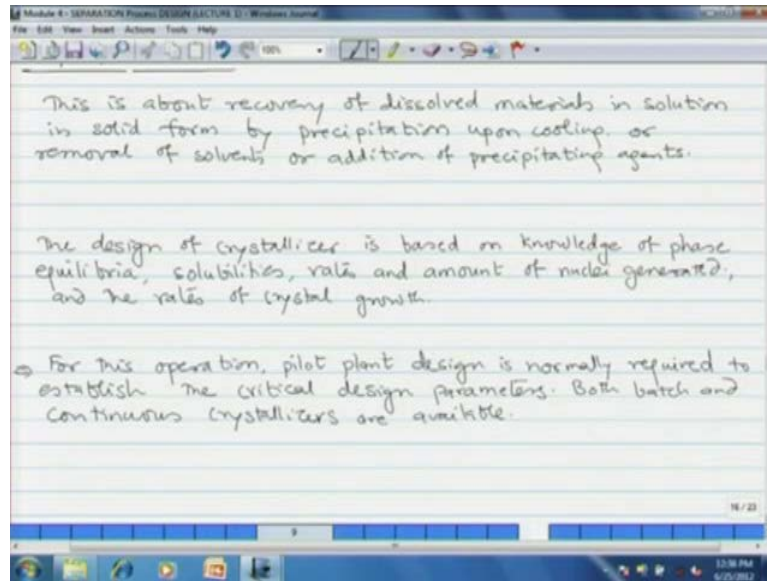 Module 4 - SEPARATION Process DESIGN (LECTURE 1) - Windows Journal
File Edit View Insert Actions Tools Help
100%
This is about recovery of dissolved materials in solution
in solid form by precipitation upon cooling or
removal of solvents or addition of precipitating agents.
The design of crystallizer is based on knowledge of phase
equilibria, solubilities, rates and amount of nuclei generated,
and the rates of crystal growth.
⇒ For this operation, pilot plant design is normally required to
establish the critical design parameters. Both batch and
continuous crystallizers are available.
16 / 23
9
12:36 PM
6/25/2012